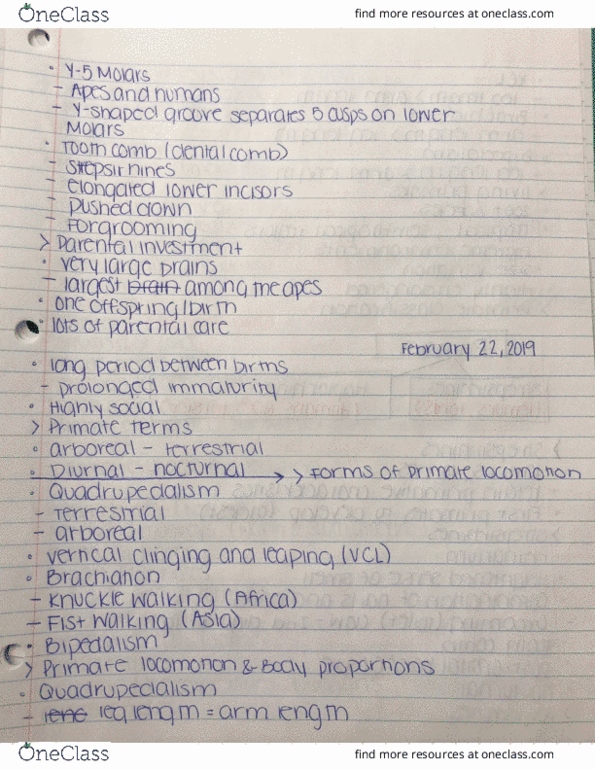 OneClass
find more resources at oneclass.com
• Y-5 Molars
- Apes and humans
- Y-shaped groove separates 5 cusps on lower
Molars
• Tooth comb (dental comb)
- Strepsirhines
- elongated lower incisors
- pushed down
- For grooming
> Parental investment
• very large brains
- largest brain among the apes
• one offspring/birth
• lots of parental care
February 22, 2019
• long period between births
- prolonged immaturity
• Highly social
> Primate terms
• arboreal - terrestrial
• Diurnal - nocturnal → > Forms of primate locomotion
• Quadrupedalism
- Terrestrial
- arboreal
• vertical clinging and leaping (VCL)
• Brachiation
- Knuckle walking (Africa)
- Fist walking (Asia)
• Bipedalism
> Primate locomotion & Body proportions
• Quadrupedalism
- leng leg length = arm length
OneClass
find more resources at oneclass.com